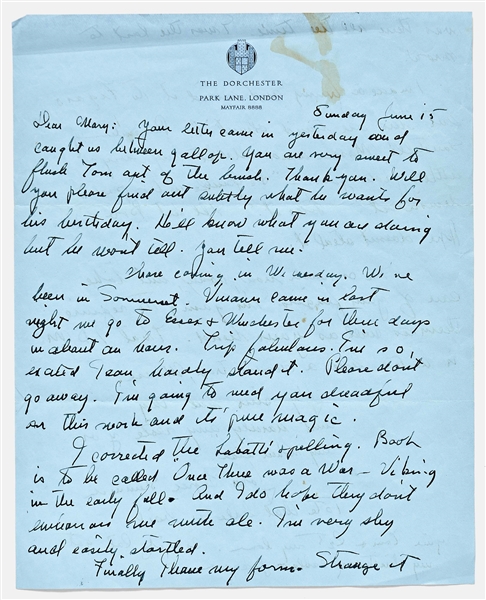 THE DORCHESTER
PARK LANE, LONDON
MAYFAIR 8888
Sunday June 15
Dear Mary: Your letter came in yesterday and
caught us between gallops. You are very sweet to
flush Tom out of the brush. Thank you. Will
you please find out subtly what he wants for
his birthday. He'll know what you are doing
but he won't tell. You tell me.
coming in Wednesday. We've
been in Somerset. Vinaver came in last
night we go to Essex & Winchester for three days
in about an hour. Trip fabulous. I'm so
excited I can hardly stand it. Please don't
go away. I'm going to need you dreadful
on this work and it's pure magic.
I corrected the spelling. Book
is to be called "Once There was a War - Viking
in the early fall. And I do hope they don't
me. I'm very shy
and easily startled.
Finally I have my form. Strange it